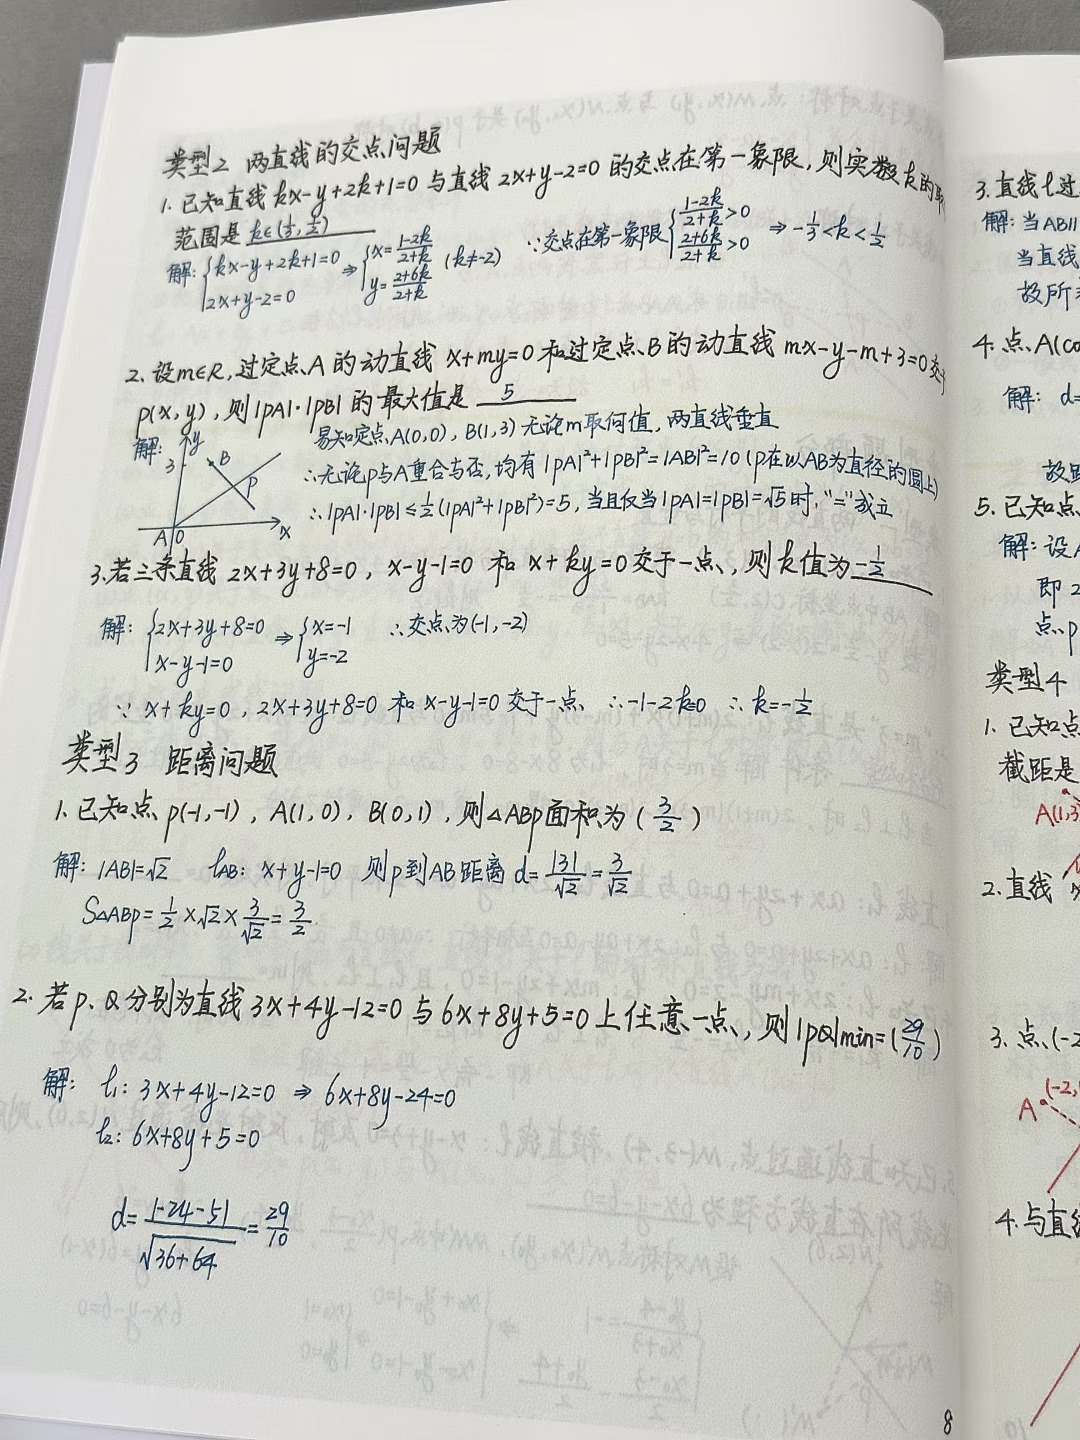 类型2 两直线的交点问题
1. 已知直线 kx-y+2k+1=0 与直线 2x+y-2=0 的交点在第一象限，则实数k的取
范围是 k∈(-1/3, 1/2)
解: {kx-y+2k+1=0 2x+y-2=0 ⇒ {x=(1-2k)/(2+k) y=(2+6k)/(2+k) (k≠-2) ∵交点在第一象限 {(1-2k)/(2+k)>0 (2+6k)/(2+k)>0 ⇒ -1/3<k<1/2
2. 设m∈R, 过定点A的动直线 x+my=0 和过定点B的动直线 mx-y-m+3=0交于
p(x,y), 则|pA|·|pB|的最大值是 5
解: 易知定点A(0,0), B(1,3) 无论m取何值, 两直线垂直
∴无论p与A重合与否, 均有 |pA|²+|pB|²=|AB|²=10 (p在以AB为直径的圆上)
∴|pA|·|pB|≤1/2(|pA|²+|pB|²)=5, 当且仅当|pA|=|pB|=√5时, "="成立
y
3
B
p
A 0
x
3. 若三条直线 2x+3y+8=0, x-y-1=0 和 x+ky=0交于一点, 则k值为 -1/2
解: {2x+3y+8=0 x-y-1=0 ⇒ {x=-1 y=-2 ∴交点为(-1,-2)
∵ x+ky=0, 2x+3y+8=0 和 x-y-1=0 交于一点 ∴-1-2k=0 ∴k=-1/2
类型3 距离问题
1. 已知点p(-1,-1), A(1,0), B(0,1), 则△ABp面积为 (3/2)
解: |AB|=√2 lAB: x+y-1=0 则p到AB距离 d=|3|/√2=3/√2
S△ABp=1/2×√2×3/√2=3/2
2. 若p、Q分别为直线 3x+4y-12=0 与 6x+8y+5=0 上任意一点, 则|pQ|min=(29/10)
解: l1: 3x+4y-12=0 ⇒ 6x+8y-24=0
l2: 6x+8y+5=0
d=|-24-5|/√(36+64)=29/10
8
3. 直线l过
解: 当AB∥
当直线
故所
4. 点A(co
解: d=
故距
5. 已知点
解: 设A
即2
点p
类型4
1. 已知点
截距是
A(1,3
2. 直线
3. 点(-2
A (-2,
4. 与直线